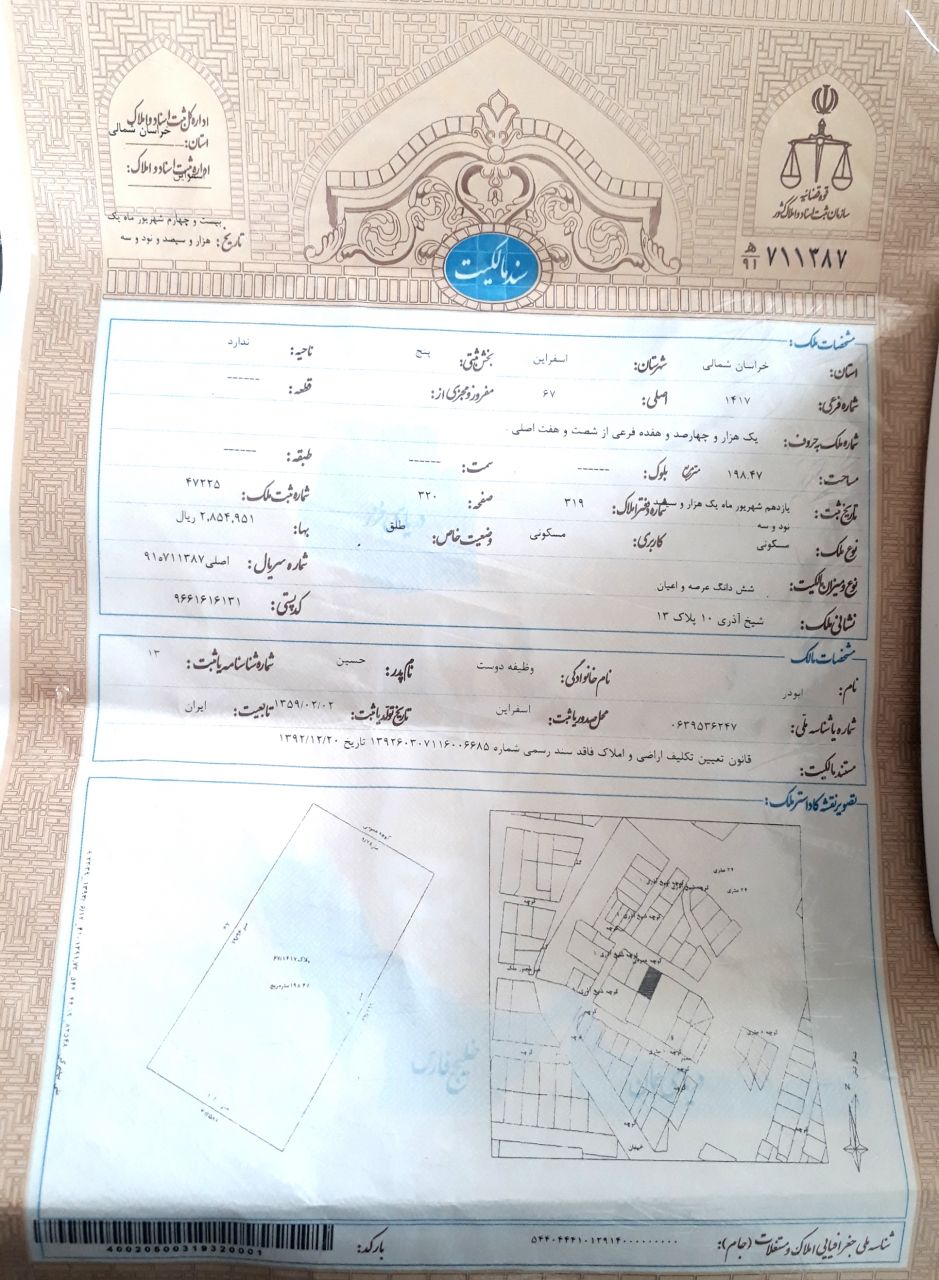 اداره کل ثبت اسناد و املاک
استان: خراسان شمالی
اداره ثبت اسناد و املاک: اسفراین
تاریخ: بیست و چهارم شهریور ماه یک هزار و سیصد و نود و سه
قوه قضائیه
سازمان ثبت اسناد و املاک کشور
۷۱۱۳۸۷ هـ/۹۱
سند مالکیت
مشخصات ملک:
استان: خراسان شمالی شهرستان: اسفراین بخش ثبتی: پنج ناحیه: ندارد
شماره فرعی: ۱۴۱۷ اصلی: ۶۷ مفروز و مجزی از: قطعه: ------
شماره ملک بحروف: یک هزار و چهارصد و هفده فرعی از شصت و هفت اصلی .
مساحت: ۱۹۸.۴۷ متر مربع بلوک: ------ سمت: ------ طبقه: ------
تاریخ ثبت: یازدهم شهریور ماه یک هزار و سیصد نود و سه شماره دفتر املاک: ۳۱۹ صفحه: ۳۲۰ شماره ثبت ملک: ۴۷۲۲۵
نوع ملک: مسکونی کاربری: مسکونی وضعیت خاص: طلق بها: ۲,۸۵۴,۹۵۱ ریال
نوع و میزان مالکیت: شش دانگ عرصه و اعیان شماره سریال: اصلی ۹۱۰۷۱۱۳۸۷
نشانی ملک: شیخ آذری ۱۰ پلاک ۱۳ کد پستی: ۹۶۶۱۶۱۶۱۳۱
مشخصات مالک
نام: ابوذر نام خانوادگی: وظیفه دوست نام پدر: حسین شماره شناسنامه یا ثبت: ۱۳
شماره یا شناسه ملی: ۰۶۳۹۵۳۶۲۴۷ محل صدور یا ثبت: اسفراین تاریخ تولد یا ثبت: ۱۳۵۹/۰۲/۰۲ تابعیت: ایران
مستند مالکیت: قانون تعیین تکلیف اراضی و املاک فاقد سند رسمی شماره ۱۳۹۲۶۰۳۰۷۱۱۶۰۰۶۶۸۵ تاریخ ۱۳۹۲/۱۲/۲۰
تصویر نقشه کاداستر ملک:
کوچه عمومی
پلاک ۶۷/۱۴۱۷
۲۴ متری
کوچه شیخ آذری
کوچه
خیابان
N
خلیج فارس
دریای عمان
شناسه ملی جغرافیایی املاک و مستغلات (جام): ۵۴۴۰۴۴۴۱۰۱۲۹۱۴۰۰۰۰۰۰۰۰۰۰
بارکد: 40020500319320001